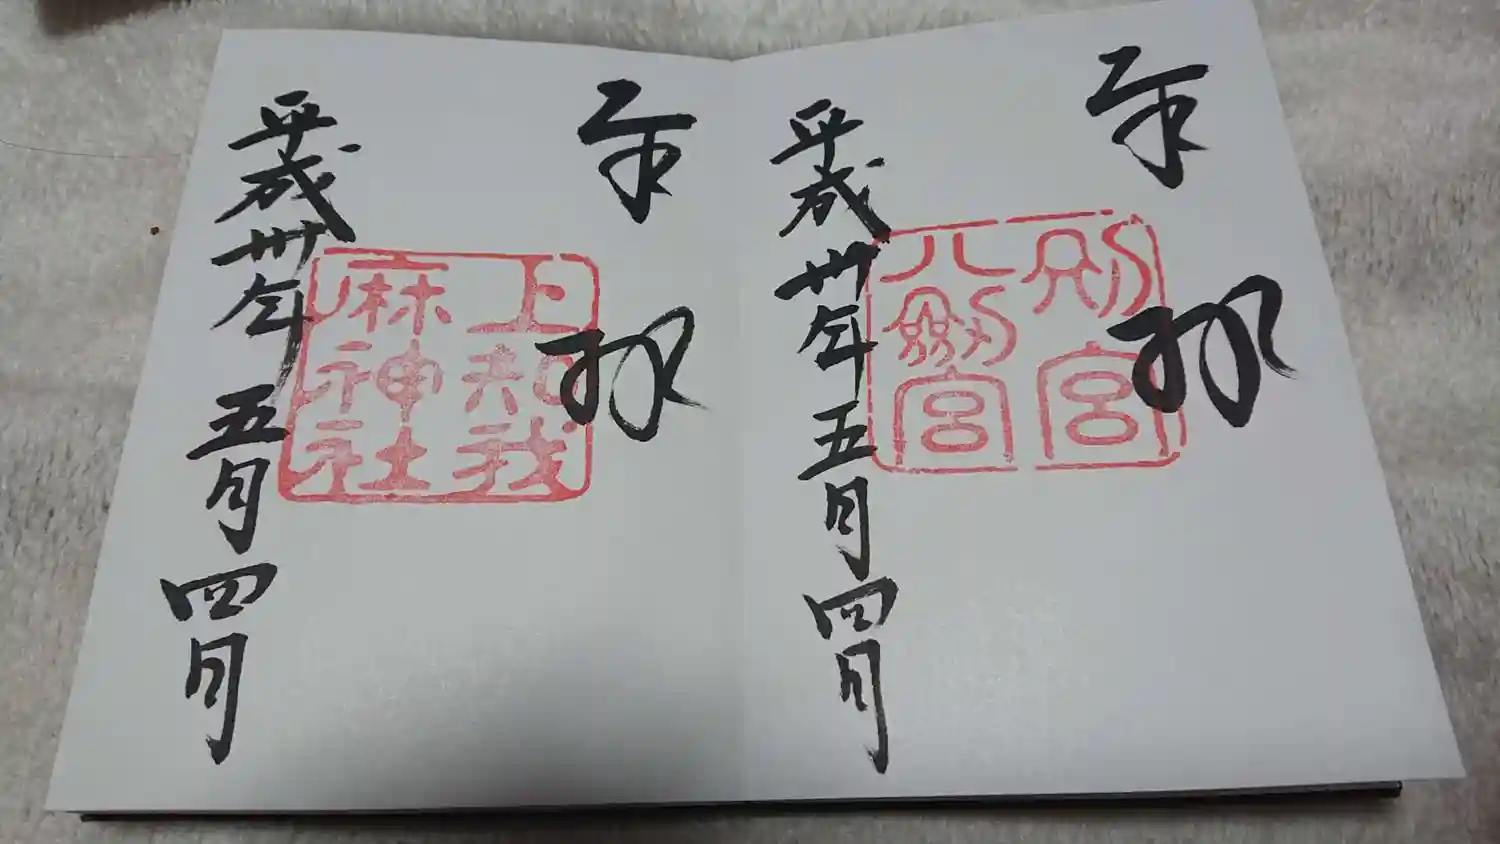 奉拝
別宮
八劔宮
平成卅年五月四日
奉拝
上知我
麻神社
平成卅年五月四日